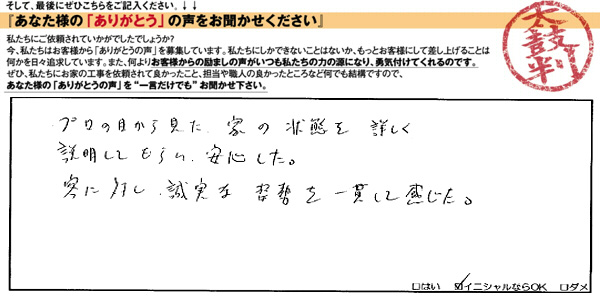 そして、最後にぜひこちらをご記入ください。↓↓
『あなた様の「ありがとう」の声をお聞かせください』
私たちにご依頼されていかがでしたでしょうか?
今、私たちはお客様から「ありがとうの声」を募集しています。私たちにしかできないことはないか、もっとお客様にして差し上げることは
何かを日々追求しています。また、何よりお客様からの励ましの声がいつも私たちの力の源になり、勇気付けてくれるのです。
ぜひ、私たちにお家の工事を依頼されて良かったこと、担当や職人の良かったところなど何でも結構ですので、
あなた様の「ありがとうの声」を“一言だけでも”お聞かせ下さい。
太鼓判
プロの目から見た、家の状態を詳しく
説明してもらい、安心した。
客に対し、誠実な姿勢を一貫して感じた。
□はい ☑イニシャルならOK □ダメ